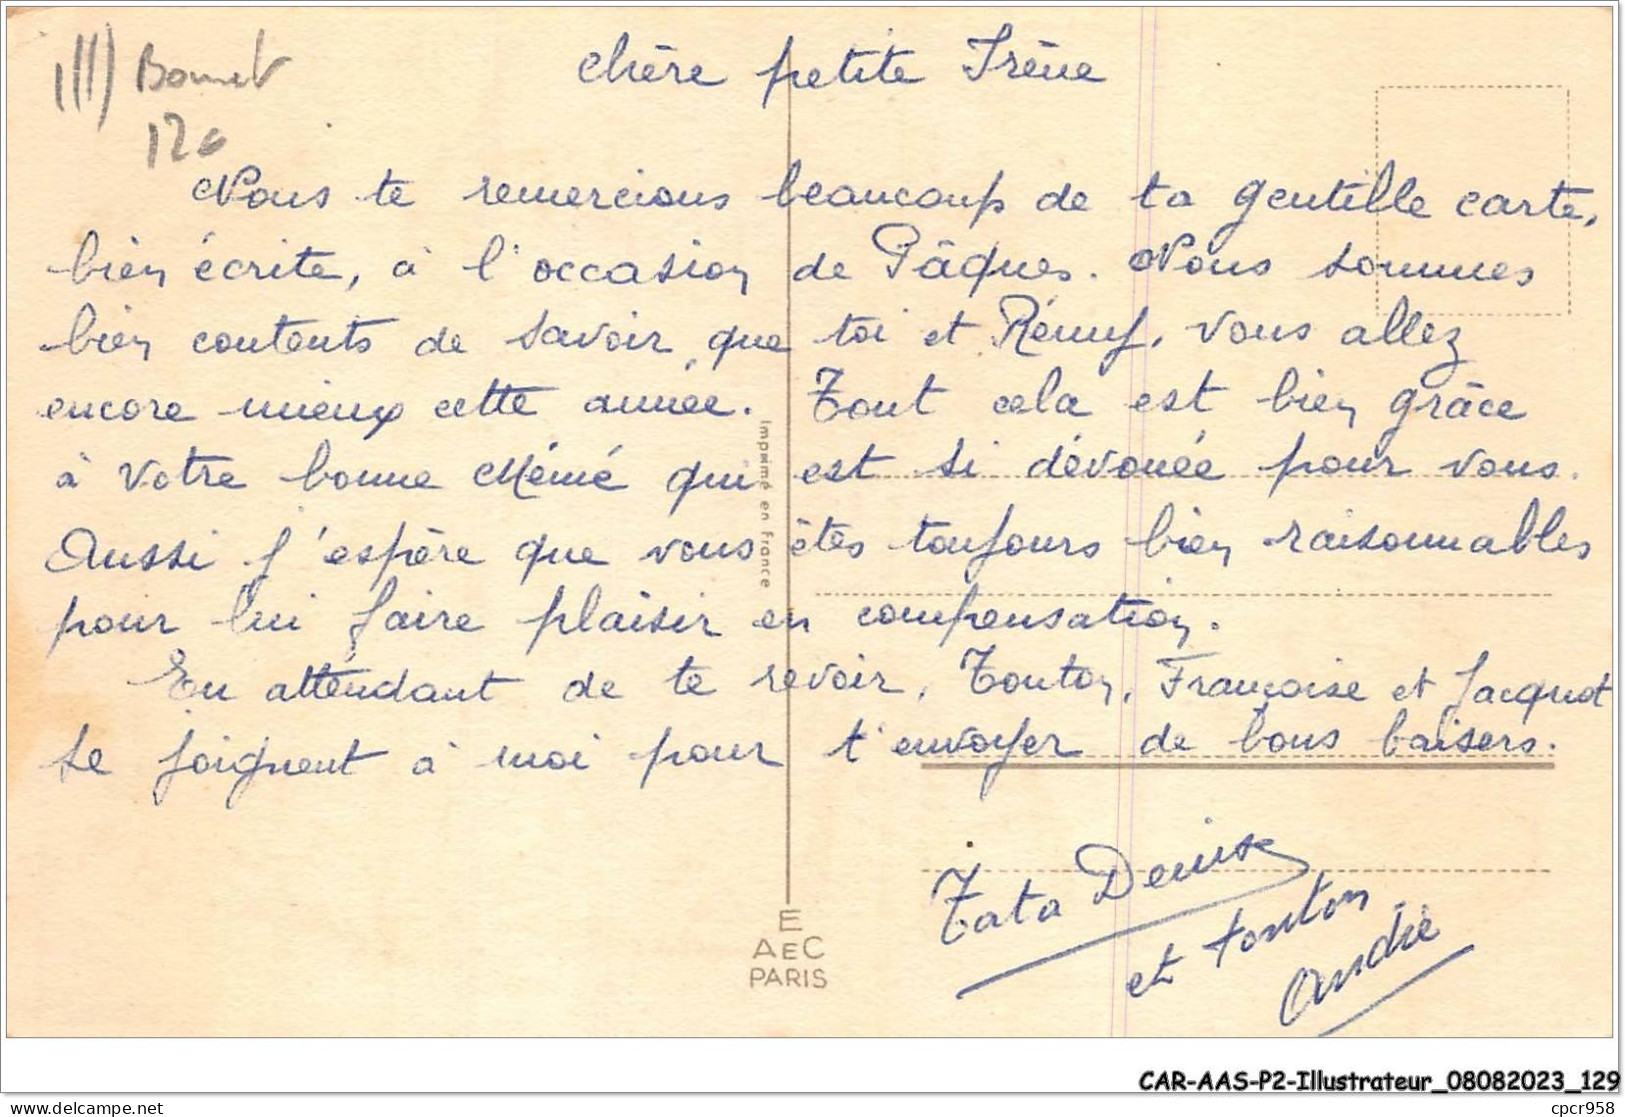 Chère petite Irène
Bonnet
120
Nous te remercions beaucoup de ta gentille carte,
bien écrite, à l'occasion de Pâques. Nous sommes
bien contents de savoir que toi et Rémy, vous allez
encore mieux cette année. Tout cela est bien grâce
à votre bonne Mémé qui est si dévouée pour vous.
Aussi j'espère que vous êtes toujours bien raisonnables
pour lui faire plaisir en compensation.
En attendant de te revoir, Tonton, Françoise et Jacquot
se joignent à moi pour t'envoyer de bons baisers.
Tata Denise
et tonton
André
Imprimé en France
E
AEC
PARIS
CAR-AAS-P2-Illustrateur_08082023_129
cpcr958